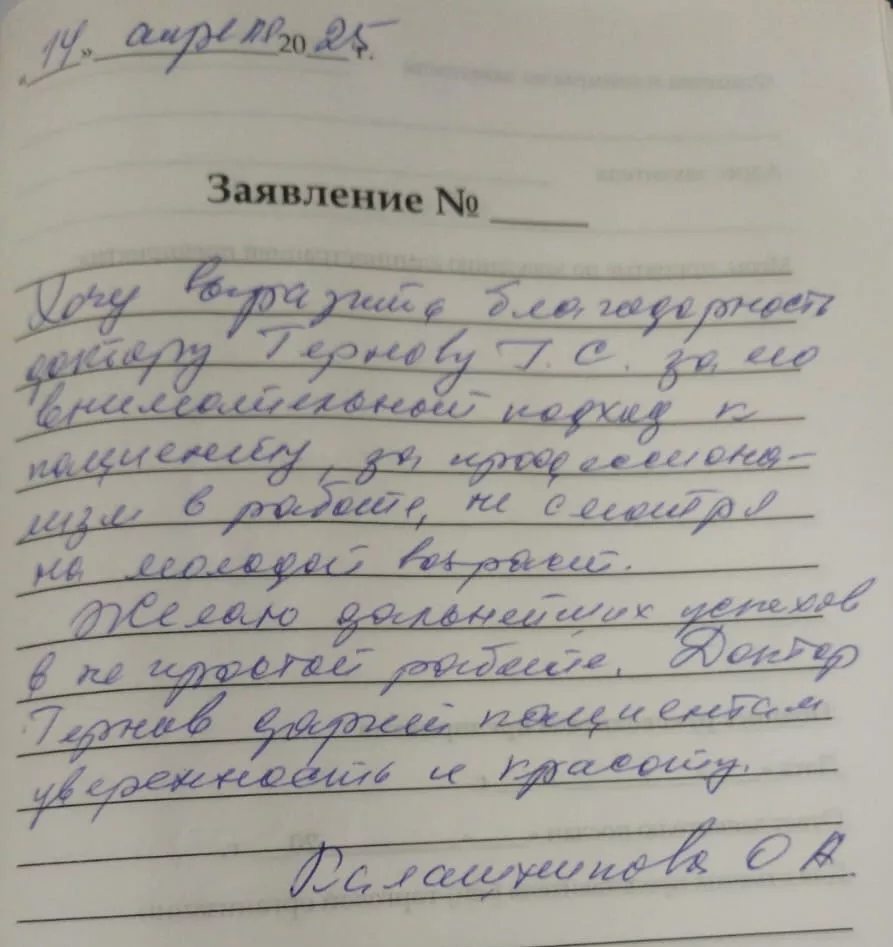 «14» апреля 2025 г.
Заявление № ____
Хочу выразить благодарность
доктору Тернову Т. С. за его
внимательный подход к
пациенту, за профессиона-
лизм в работе, не смотря
на молодой возраст.
Желаю дальнейших успехов
в не простой работе. Доктор
Тернов дарит пациентам
уверенность и красоту.
О А